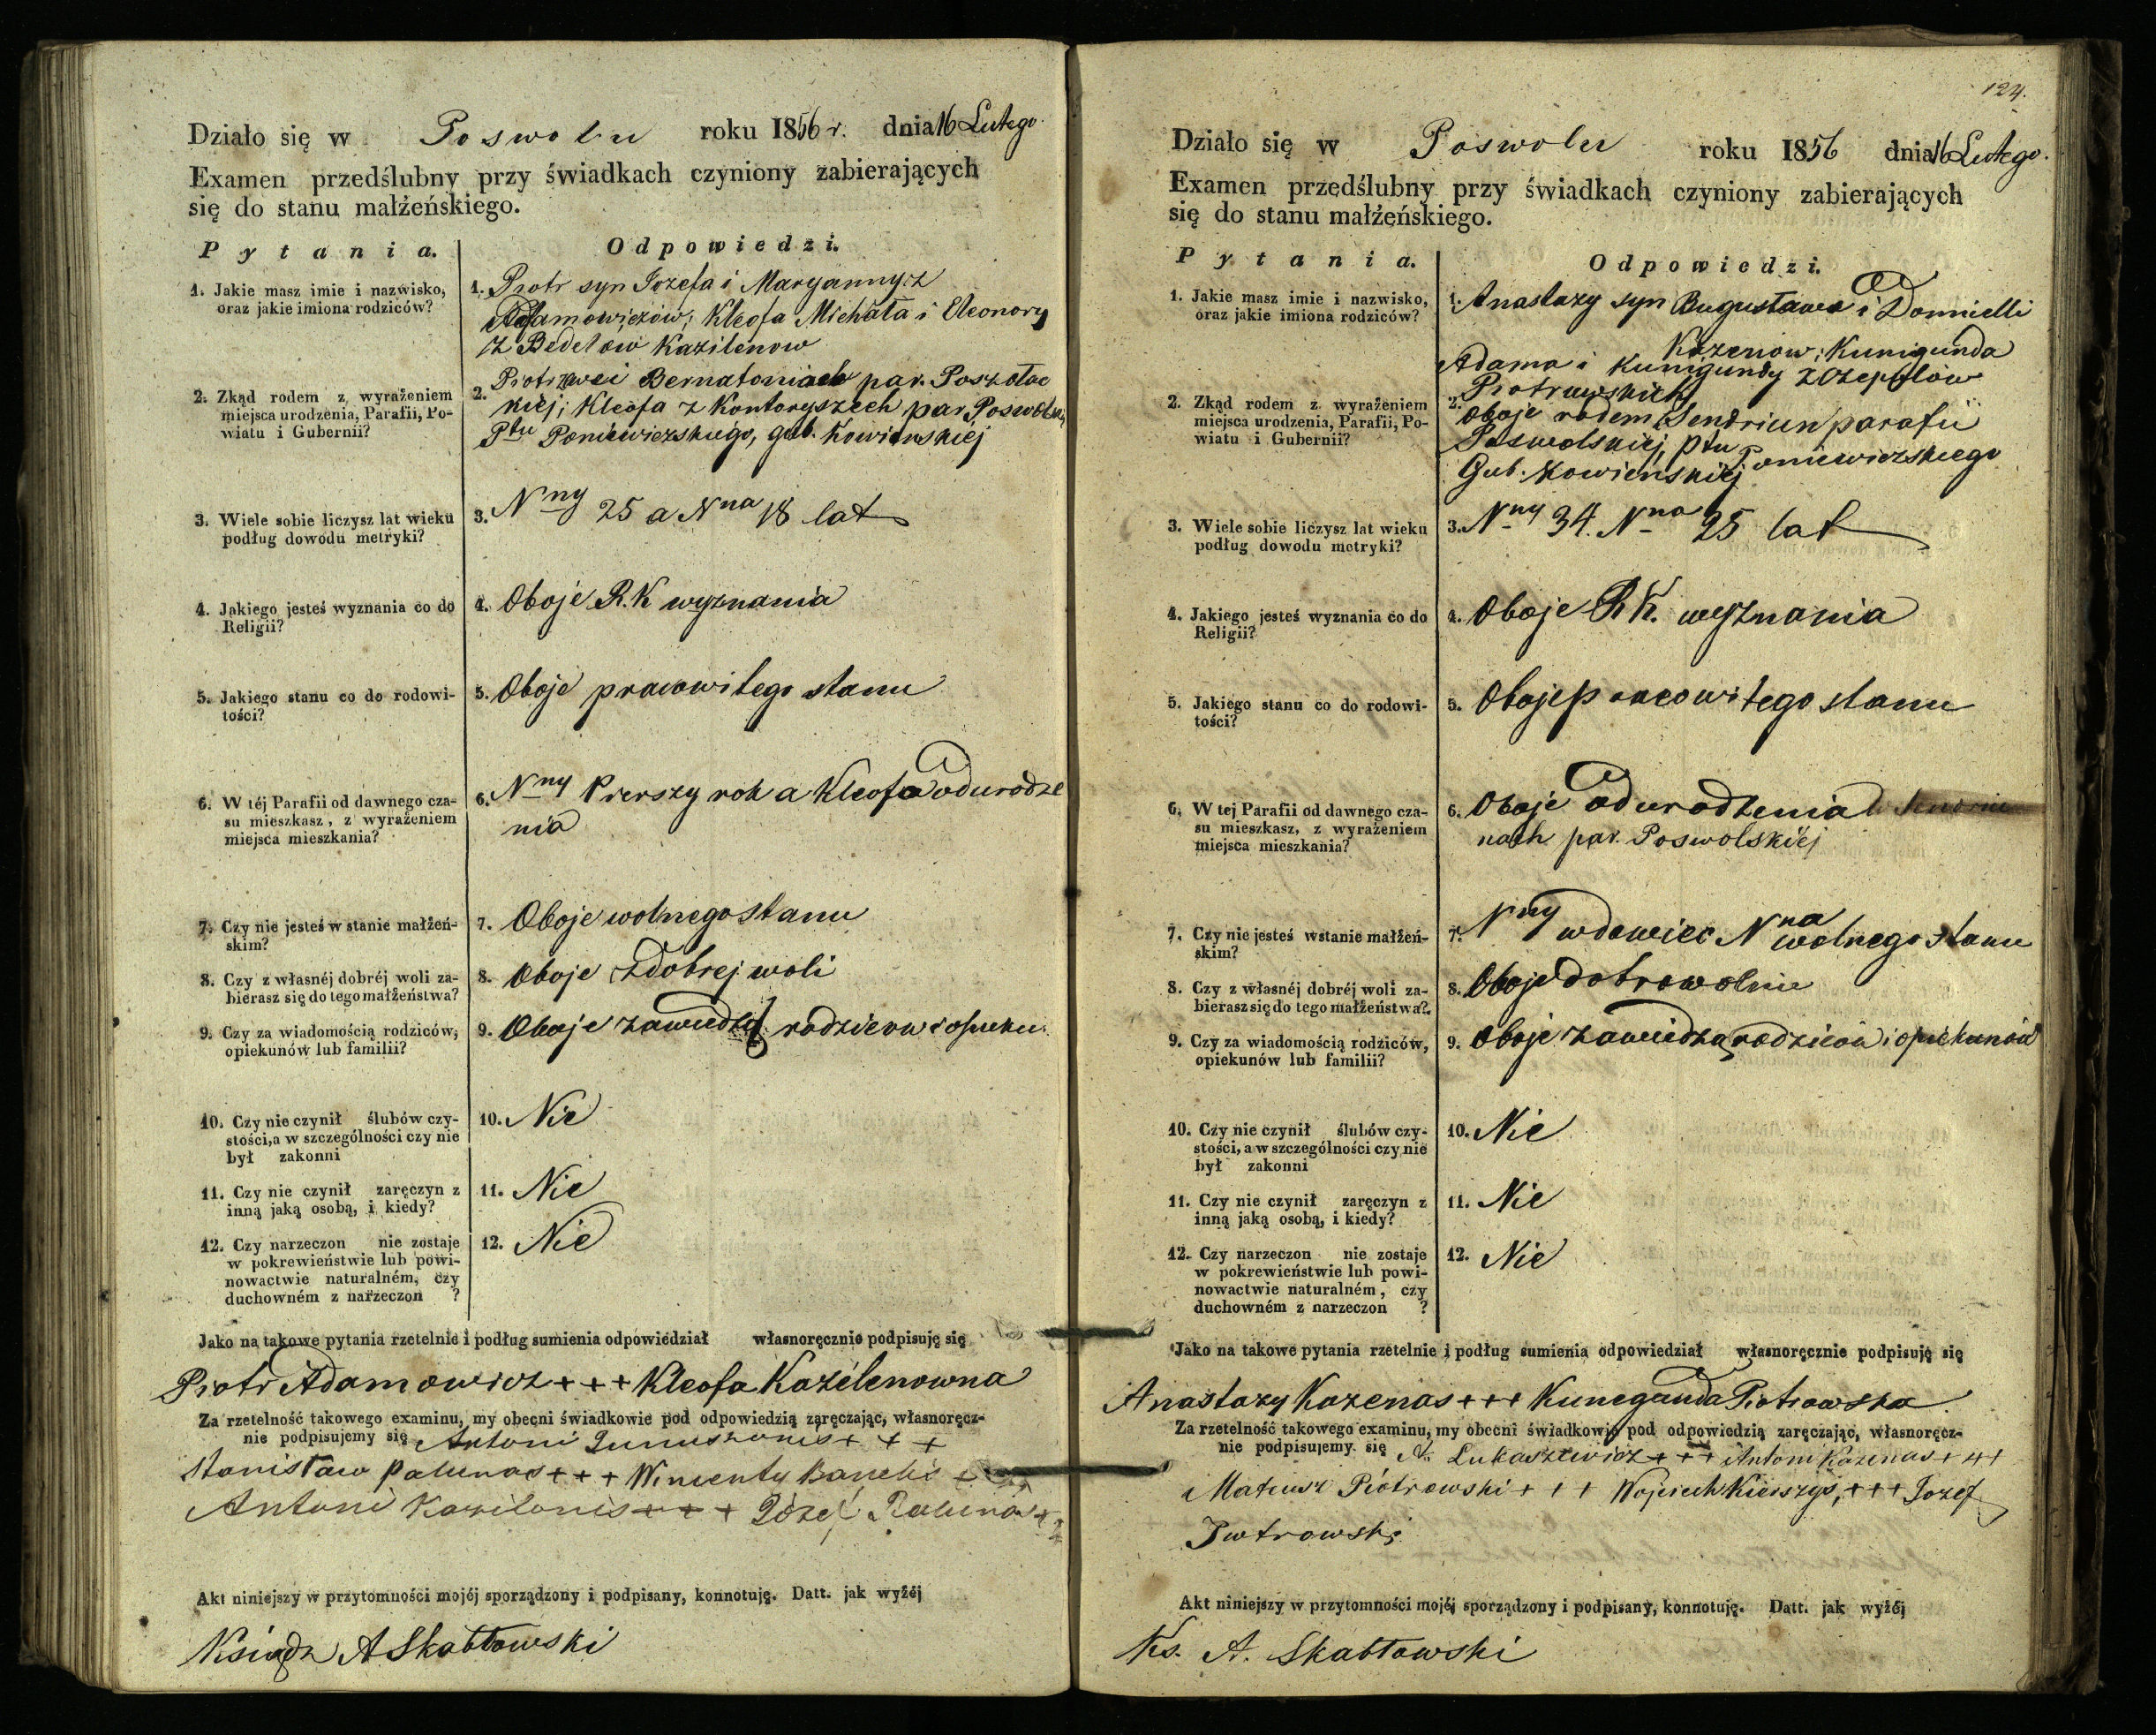 Działo się w Poswolu roku 1856 r. dnia 16 Lutego.
Examen przedślubny przy świadkach czyniony zabierających
się do stanu małżeńskiego.
Pytania. Odpowiedzi.
1. Jakie masz imie i nazwisko,
oraz jakie imiona rodziców?
1. Piotr syn Jozefa i Maryanny z
Adamowiczow; Kleofa Michała i Eleonory
z Bedelow Kazilenow
2. Zkąd rodem z wyrażeniem
miejsca urodzenia, Parafii, Po-
wiatu i Gubernii?
2. Piotr zwsi Bernatoniach par. Poszołac
kiej; Kleofa z Kontoryszech par. Poswols
Ptu Poniewiezskiego, gub. Kowienskiej
3. Wiele sobie liczysz lat wieku
podług dowodu metryki?
3. Nny 25 a Nna 18 lat
4. Jakiego jesteś wyznania co do
Religii?
4. Oboje R.K wyznania
5. Jakiego stanu co do rodowi-
tości?
5. Oboje pracowitego stanu
6. W téj Parafii od dawnego cza-
su mieszkasz, z wyrażeniem
miejsca mieszkania?
6. Nny Pierszy rok a Kleofa od urodze
nia
7. Czy nie jesteś w stanie małżeń-
skim?
7. Oboje wolnego stanu
8. Czy z własnéj dobréj woli za-
bierasz się do tego małżeństwa?
8. Oboje z dobrej woli
9. Czy za wiadomością rodziców,
opiekunów lub familii?
9. Oboje zawiedzą rodzicow i opieku.
10. Czy nie czynił ślubów czy-
stości, a w szczególności czy nie
był zakonni
10. Nie
11. Czy nie czynił zaręczyn z
inną jaką osobą, i kiedy?
11. Nie
12. Czy narzeczon nie zostaje
w pokrewieństwie lub powi-
nowactwie naturalném, czy
duchowném z narzeczon ?
12. Nie
Jako na takowe pytania rzetelnie i podług sumienia odpowiedział własnoręcznie podpisuję się
Piotr Adamowicz + + + Kleofa Kazilenowna
Za rzetelność takowego examinu, my obecni świadkowie pod odpowiedzią zaręczając, własnoręcz-
nie podpisujemy się Antoni + + +
Stanisław Palunas + + + Wincenty
Antoni Kazilonis + + + Józef Palunas + +
Akt niniejszy w przytomności mojéj sporządzony i podpisany, konnotuję. Datt. jak wyżéj
Ksiądz A Skabtowski
124.
Działo się w Poswolu roku 1856 dnia 16 Lutego.
Examen przedślubny przy świadkach czyniony zabierających
się do stanu małżeńskiego.
Pytania. Odpowiedzi.
1. Jakie masz imie i nazwisko,
oraz jakie imiona rodziców?
1. Anastazy syn Bugusława i Donnielli
Kazenow; Kunigunda
Adama i Kunigundy z Czepulow
Piotrowskich
2. Zkąd rodem z wyrażeniem
miejsca urodzenia, Parafii, Po-
wiatu i Gubernii?
2. Oboje rodem Sendriun parafii
Poswolskiej, Ptu Poniewiezskiego
Gub. Kowienskiej
3. Wiele sobie liczysz lat wieku
podług dowodu metryki?
3. Nny 34. Nna 25 lat
4. Jakiego jesteś wyznania co do
Religii?
4. Oboje R K. wyznania
5. Jakiego stanu co do rodowi-
tości?
5. Oboje pracowitego stanu
6. W tej Parafii od dawnego cza-
su mieszkasz, z wyrażeniem
miejsca mieszkania?
6. Oboje od urodzenia
nach par. Poswolskiéj
7. Czy nie jesteś wstanie małżeń-
skim?
7. Nny wdowiec Nna wolnego stanu
8. Czy z własnéj dobréj woli za-
bierasz się do tego małżeństwa?
8. Oboje dobrowolnie
9. Czy za wiadomością rodziców,
opiekunów lub familii?
9. Oboje zawiedzą rodzicow i opiekunow
10. Czy nie czynił ślubów czy-
stości, a w szczególności czy nie
był zakonni
10. Nie
11. Czy nie czynił zaręczyn z
inną jaką osobą, i kiedy?
11. Nie
12. Czy narzeczon nie zostaje
w pokrewieństwie lub powi-
nowactwie naturalném, czy
duchowném z narzeczon ?
12. Nie
Jako na takowe pytania rzetelnie i podług sumienia odpowiedział własnoręcznie podpisuję się
Anastazy Kazenas + + + Kunegunda Piotrowska.
Za rzetelność takowego examinu, my obecni świadkowie pod odpowiedzią zaręczając, własnoręcz-
nie podpisujemy się Lukaszewicz + + + Antoni Kazenas + + +
Mateusz Piótrowski + + + Wojciech Kierszys, + + + Jozef
Piotrowski
Akt niniejszy w przytomności mojéj sporządzony i podpisany, konnotuję. Datt. jak wyżéj
Ks. A. Skabtowski